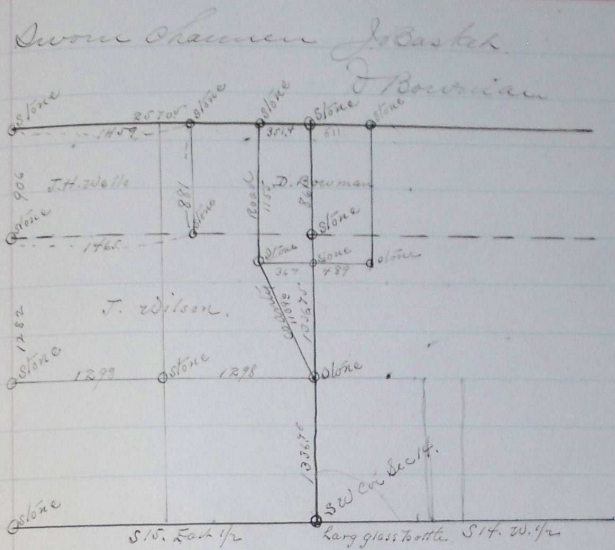 Sworn Chainmen J. Baskeh.
D Bowman
Stone Stone Stone Stone Stone
2570
1459 351.4 511
906 J. H. Wells 881 Road 115 D. Bowman
Stone Stone Stone
1465
Stone Stone Stone
367 489
J. Wilson. County Road
1282
Stone 1299 Stone 1298 Stone
1336.76
S W Cor Sec 14.
Stone
S 15. East 1/2 Larg glass bottle S 14. W. 1/2